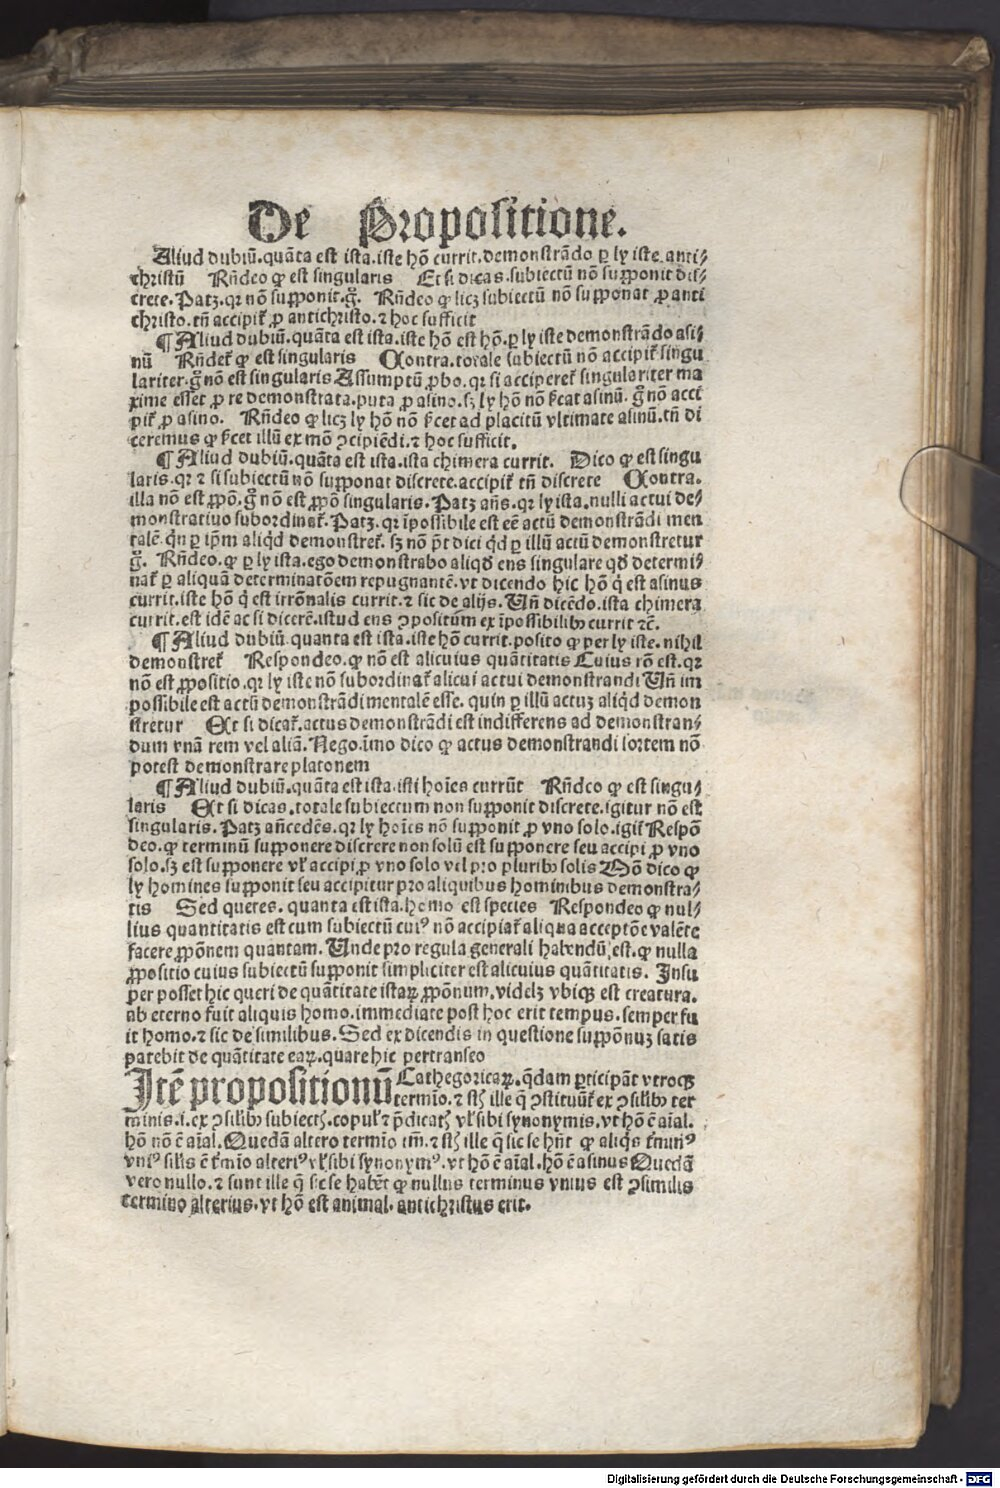 De Propositione.
Aliud dubiū.quāta est ista.iste hō currit.demonstrādo ꝑ ly iste anti⸗
christū Rñdeo ꝙ est singularis Et si dicas.subiectū nō supponit dis⸗
crete.Patꝫ.qr nō supponit.gͦ. Rñdeo ꝙ licꝫ subiectū nō supponat ꝓ anti
christo.tñ accipit̃ ꝓ antichristo.⁊ hoc sufficit
¶ Aliud dubiū.quāta est ista.iste hō est hō.ꝑ ly iste demonstrādo asi⸗
nū Rñdet̃ ꝙ est singularis Contra.totale subiectū nō accipit̃ singu
lariter.gͦ nō est singularis Assumptū ꝓbo.qr si acciperet̃ singulariter ma
xime esset ꝓ re demonstrata.puta ꝓ asino.sꝫ ly hō nō s̃cat asinū.gͦ nō acci
pit̃ ꝓ asino. Rñdeo ꝙ licꝫ ly hō nō s̃cet ad placitū vltimate asinū.tñ di
ceremus ꝙ s̃cet illū ex mō ꝯcipiēdi.⁊ hoc sufficit.
¶ Aliud dubiū.quāta est ista.ista chimera currit. Dico ꝙ est singu
laris.qr ⁊ si subiectū nō supponat discrete.accipit̃ tñ discrete Contra.
illa nō est ꝓpō.gͦ nō est ꝓpō singularis.Patꝫ añs.qr ly ista.nulli actui de⸗
monstratiuo subordinat̃.Patꝫ.qr īpossibile est eē actū demonstrādi men
talē qͥn ꝑ ip̄m aliqͥd demonstret̃.sꝫ nō p̄t dici qͥd ꝑ illū actū demonstretur
gͦ. Rñdeo.ꝙ ꝑ ly ista.ego demonstrabo aliqͥd ens singulare qd̓ determi⸗
nat̃ ꝑ aliquā determinatōem repugnantē.vt dicendo hic hō qͥ est asinus
currit.iste hō qͥ est irrōnalis currit.⁊ sic de alijs.Vñ dicēdo.ista chimera
currit.est idē ac si dicerē.istud ens ꝯpositum ex īpossibilibꝰ currit ⁊c̃.
¶ Aliud dubiū.quanta est ista.iste hō currit.posito ꝙ per ly iste.nihil
demonstret̃ Respondeo.ꝙ nō est alicuius quātitatis Cuius rō est.qr
nō est ꝓpositio.qr ly iste nō subordinat̃ alicui actui demonstrandi Vñ im
possibile est actū demonstrādi mentalē esse.quin ꝑ illū actuꝫ aliqͥd demon
stretur Et si dicat̃.actus demonstrādi est indifferens ad demonstran⸗
dum vnā rem vel aliā.Nego.īmo dico ꝙ actus demonstrandi sortem nō
potest demonstrare platonem
¶ Aliud dubiū.quāta est ista.isti hoīes currūt Rñdeo ꝙ est singu⸗
laris Et si dicas.totale subiectum non supponit discrete.igitur nō est
singularis.Patꝫ añcedēs.qr ly hoīes nō supponit ꝓ vno solo.igit̃ Respō
deo.ꝙ terminū supponere discrete non solū est supponere seu accipi ꝓ vno
solo.sꝫ est supponere vl̓ accipi ꝓ vno solo vel pro pluribꝰ solis Mō dico ꝙ
ly homines supponit seu accipitur pro aliquibus hominibus demonstra⸗
tis Sed queres.quanta est ista.homo est species Respondeo ꝙ nul⸗
lius quantitatis est cum subiectū cuiꝰ nō accipiat̃ aliqua acceptōe valēte
facere ꝓpōnem quantam.Vnde pro regula generali habendū est.ꝙ nulla
ꝓpositio cuius subiectū supponit simpliciter est alicuius quātitatis. Insu
per posset hic queri de quātitate istaꝝ ꝓpōnum.videlꝫ vbiqꝫ est creatura.
ab eterno fuit aliquis homo.immediate post hoc erit tempus.semper fu
it homo.⁊ sic de similibus.Sed ex dicendis in questione suppōnuꝫ satis
patebit de quātitate eaꝝ.quare hic pertranseo
Itē propositionū Cathegoricaꝝ.qͥdam ꝑticipāt vtroqꝫ
termīo.⁊ st̃ ille q̄ ꝯstituūt̃ ex ꝯsilibꝰ ter
minis.i.ex ꝯsilibꝰ subiect̃.copul̓ ⁊ p̄dicat̃ vl̓ sibi synonymis.vt hō ē aīal.
hō nō ē aīal.Quedā altero termīo tm̄.⁊ st̃ ille q̄ sic se hn̄t ꝙ aliqͥs t̃minꝰ
vniꝰ silis ē t̃mīo alteriꝰ vl̓ sibi synonymꝰ.vt hō ē aīal.hō ē asinus Quedā
vero nullo.⁊ sunt ille q̄ sic se habēt ꝙ nullus terminus vnius est ꝯsimilis
termino alterius.vt hō est animal.antichristus erit.
Digitalisierung gefördert durch die Deutsche Forschungsgemeinschaft - DFG